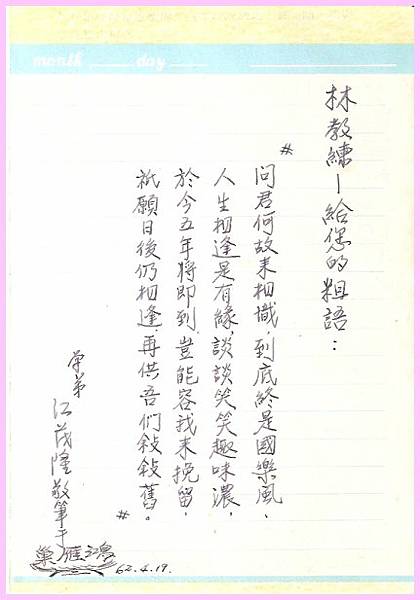 month day
林教練－給您的粗語：
#
問君何故來相識，到底終是國樂風、
人生相逢是有緣，談談笑笑趣味濃，
於今五年將即到，豈能容我來挽留，
祇願日後仍相逢，再供吾們敍敍舊。
#
学弟
江茂隆敬筆于
雁鴻
62.4.19.